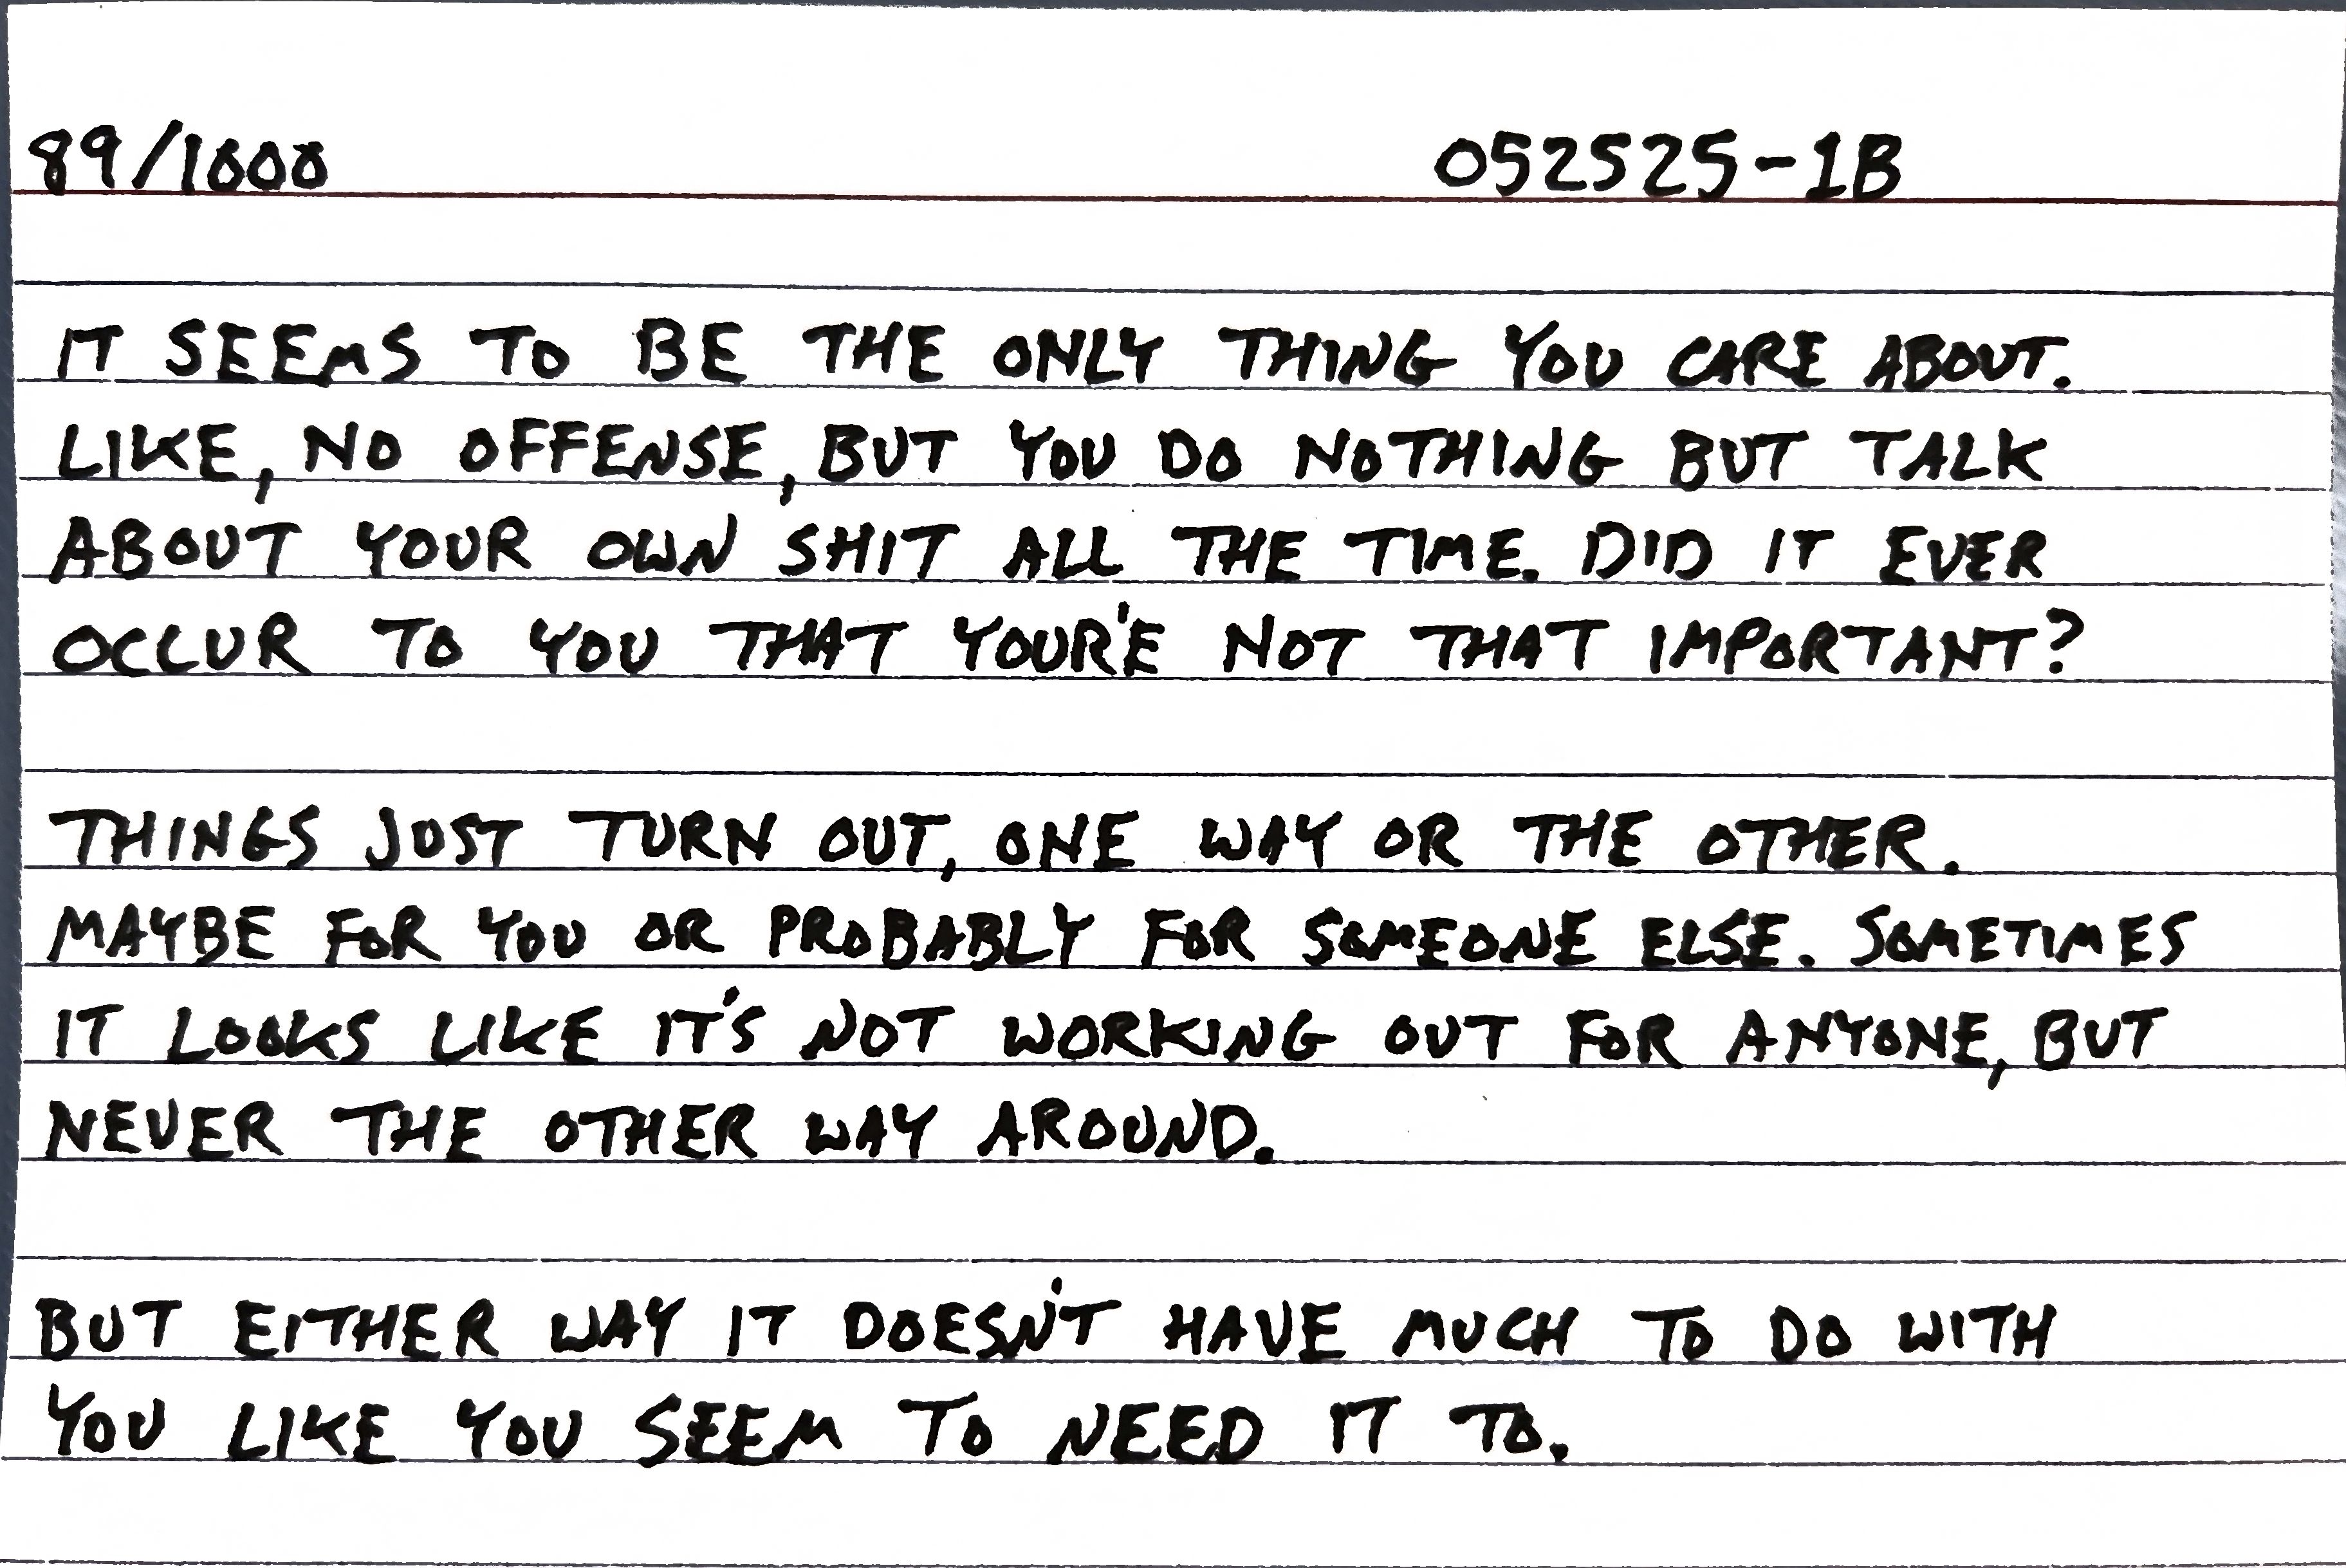 89/1000 052525-1B
IT SEEMS TO BE THE ONLY THING YOU CARE ABOUT.
LIKE, NO OFFENSE, BUT YOU DO NOTHING BUT TALK
ABOUT YOUR OWN SHIT ALL THE TIME. DID IT EVER
OCCUR TO YOU THAT YOUR'E NOT THAT IMPORTANT?
THINGS JUST TURN OUT, ONE WAY OR THE OTHER.
MAYBE FOR YOU OR PROBABLY FOR SOMEONE ELSE. SOMETIMES
IT LOOKS LIKE IT'S NOT WORKING OUT FOR ANYONE, BUT
NEVER THE OTHER WAY AROUND.
BUT EITHER WAY IT DOESN'T HAVE MUCH TO DO WITH
YOU LIKE YOU SEEM TO NEED IT TO.